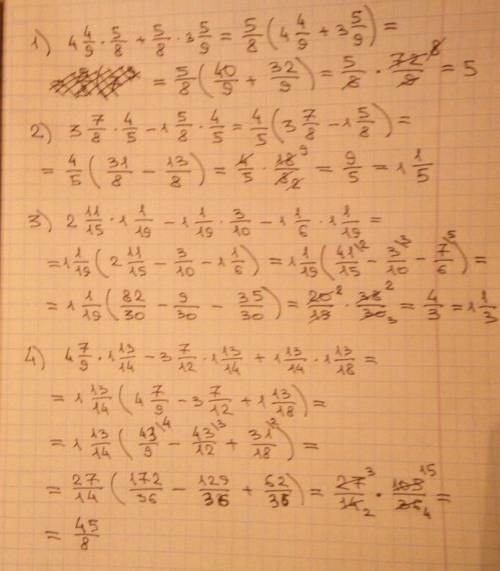 1) 4 4/9 · 5/8 + 5/8 · 3 5/9 = 5/8 (4 4/9 + 3 5/9) =
= 5/8 (40/9 + 32/9) = 5/8 · 72/9 8 = 5
2) 3 7/8 · 4/5 - 1 5/8 · 4/5 = 4/5 (3 7/8 - 1 5/8) =
= 4/5 (31/8 - 13/8) = 4/5 · 18 9/8 2 = 9/5 = 1 4/5
3) 2 11/15 · 1 1/19 - 1 1/19 · 3/10 - 1 1/6 · 1 1/19 =
= 1 1/19 (2 11/15 - 3/10 - 1 1/6) = 1 1/19 (41\2/15 - 3\3/10 - 7\5/6) =
= 1 1/19 (82/30 - 9/30 - 35/30) = 20 2/19 · 38 2/30 3 = 4/3 = 1 1/3
4) 4 7/9 · 1 13/14 - 3 7/12 · 1 13/14 + 1 13/14 · 1 13/18 =
= 1 13/14 (4 7/9 - 3 7/12 + 1 13/18) =
= 1 13/14 (43\4/9 - 43\3/12 + 31\2/18) =
= 27/14 (172/36 - 129/36 + 62/36) = 27 3/14 2 · 105 15/36 4 =
= 45/8